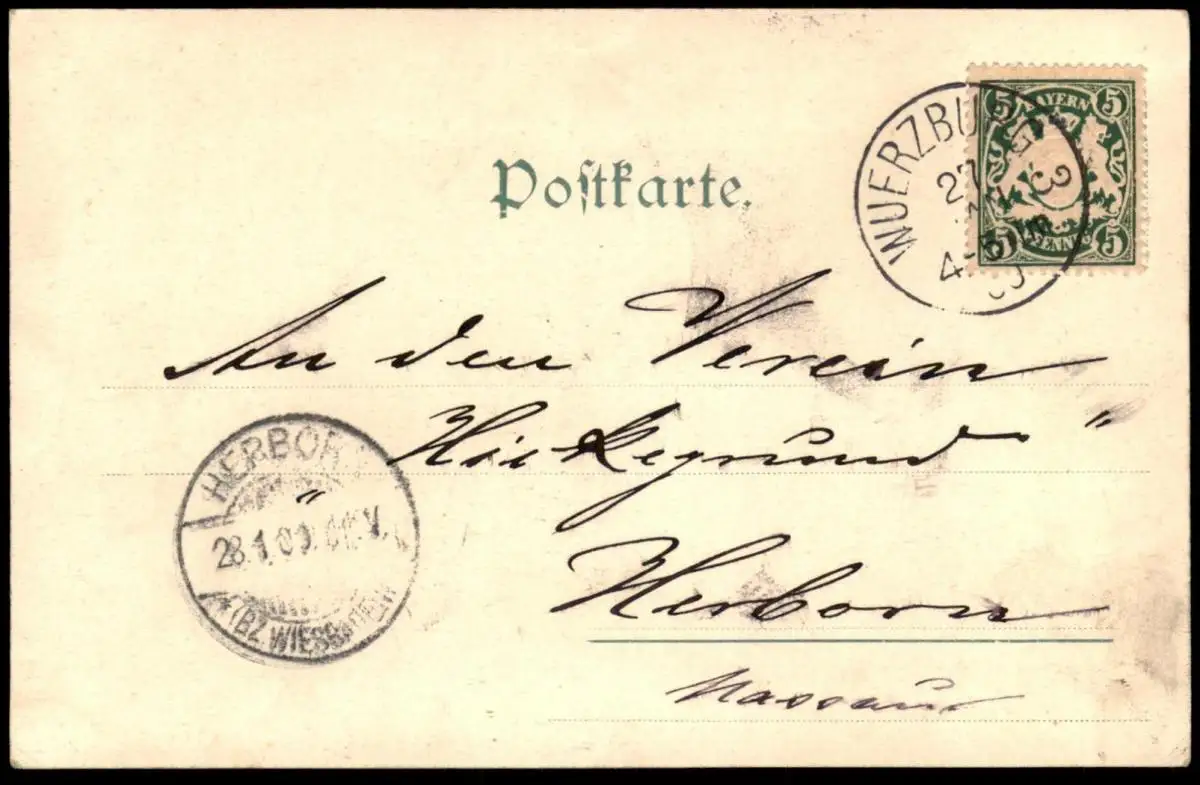 5 BAYERN 5
5 PFENNIG 5
WUERZBURG 3
27
4-5 Nm
00
Postkarte.
An den Verein
„Hickegrund“
Herborn
Nassau
HERBORN
28.1.00.
* (BZ. WIESBADEN)